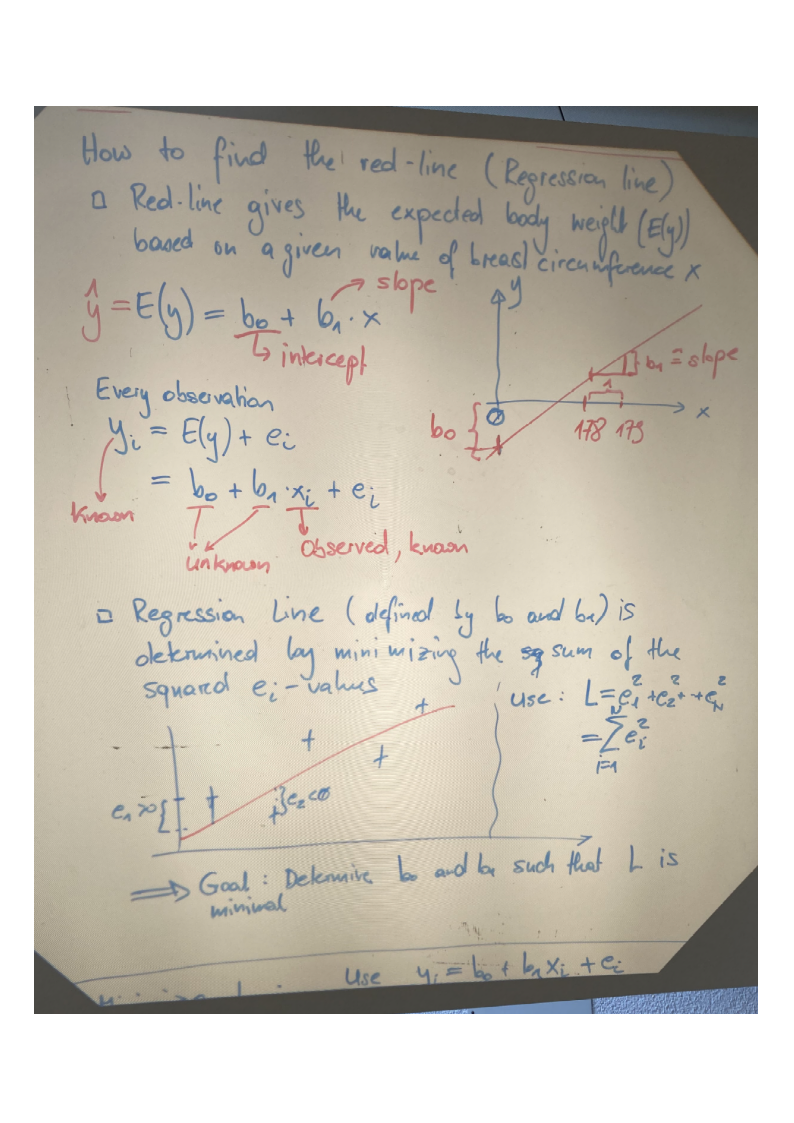 How to find the red-line (Regression line)
□ Red-line gives the expected body weight (E(y))
based on a given value of breast circumference x
ŷ = E(y) = b₀ + b₁ · x
slope
intercept
y
b₁ ≙ slope
1
x
0
178 179
b₀
Every observation
yᵢ = E(y) + eᵢ
= b₀ + b₁ · xᵢ + eᵢ
known
unknown
Observed, known
□ Regression Line (defined by b₀ and b₁) is
determined by minimizing the sum of the
squared eᵢ-values
use: L = e₁² + e₂² + + e_N²
= ∑ᵢ₌₁ᴺ eᵢ²
e₁ > 0
e₂ < 0
⟹ Goal: Determine b₀ and b₁ such that L is
minimal
Use yᵢ = b₀ + b₁ xᵢ + eᵢ